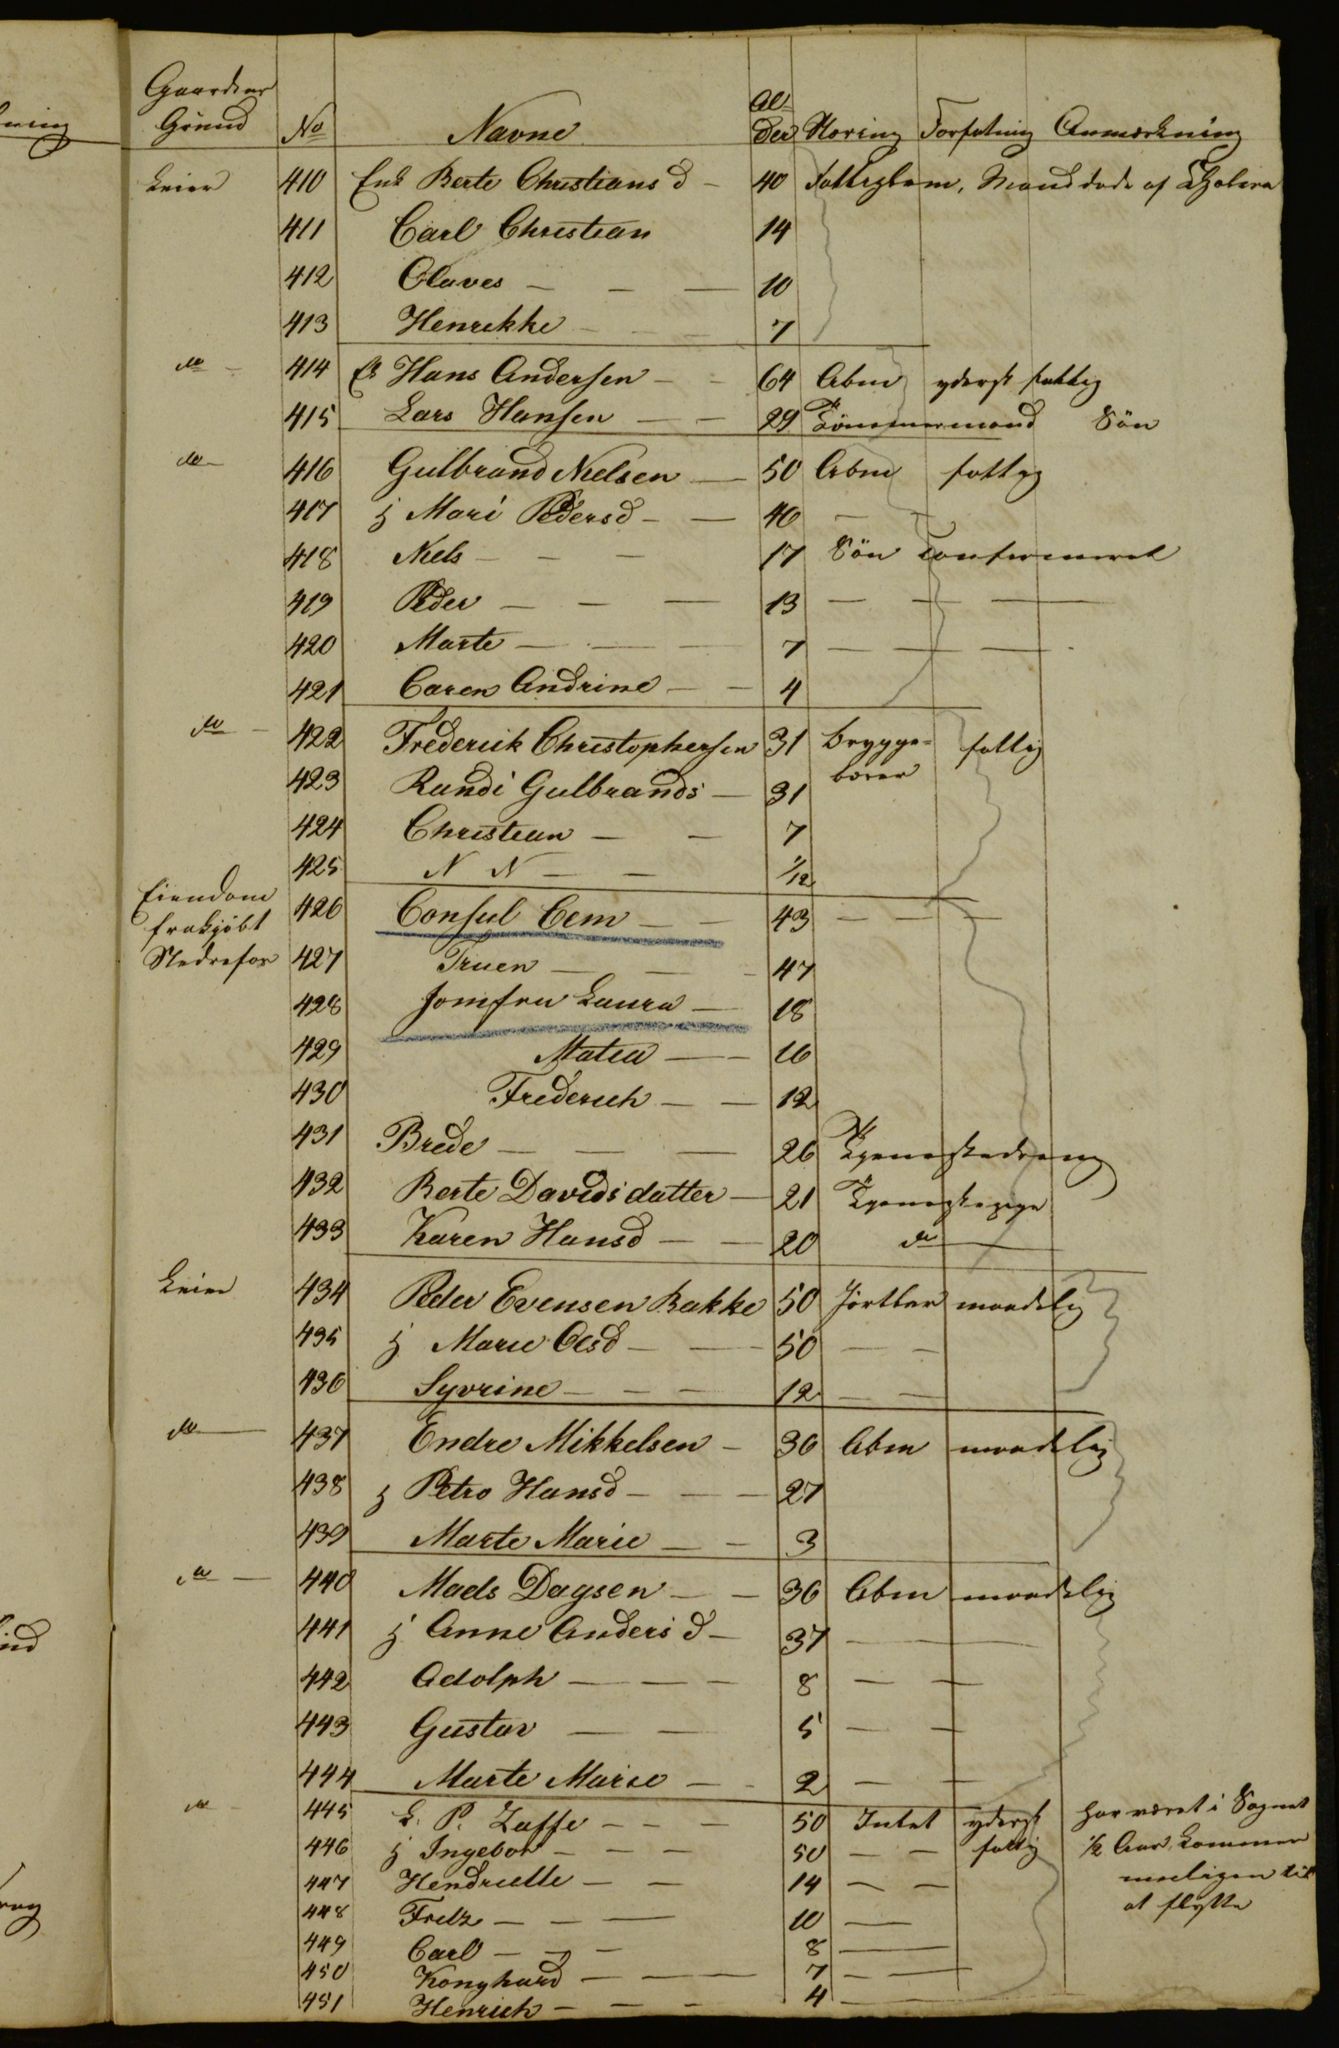 Gaardens Grund No Navne Alder Næring Forfatning Anmærkning
Leier 410 Enk Berte Christiansd - 40 Fattiglem, Mand døde af Cholera
411 Carl Christian 14
412 Olaves - - - 10
413 Henrikke - - 7
do - 414 Ek Hans Andersen - - 64 Abm yderst fattig
415 Lars Hansen - - 29 Tömmermand Sön
do - 416 Gulbrand Nielsen - 50 Abm fattig
417 h Mari Pedersd - - 40 - -
418 Niels - - - 17 Sön Confirmeret
419 Peder - - - 13 - - -
420 Marte - - - 7 - - -
421 Caren Andrine - - 4
do - 422 Frederik Christophersen 31 Brygge= fattig
bærer
423 Randi Gulbrands - 31
424 Christian - - 7
425 N N - - 1/12
Eiendom 426 Consul Cem - - 43 - - -
frakjöbt
Nedrefos 427 Fruen - - - 47
428 Jomfru Laura - 18
429 Matea - - 16
430 Frederich - - 12
431 Brede - - - 26 Tjenestedreng
432 Berte Davidsdatter - 21 Tjenestepige
433 Karen Hansd - - 20 do -
Leier 434 Peder Evensen Bakke 50 maadelig
435 h Marie Olsd - - - 50 - -
436 Syvrine - - - 12 - -
do - 437 Endre Mikkelsen - 36 Abm maadelig
438 h Petro Hansd - - - 27
439 Marte Marie - - 3
do - 440 Mads Dagsen - - 36 Abm maadelig
441 h Anne Andersd - 37 - - -
442 Adolph - - - 8 - -
443 Gustav - - 5 - -
444 Marte Marie - - 2 - -
do - 445 L. P. Zaffe - - - 50 Intet yderst har været i Sognet
446 h Ingebor - - - 50 - - fattig 1/2 Aar, kommer
447 Hendrielle - - 14 - - til
448 Fritz - - - 10 - at flytte
449 Carl - - - 8 -
450 Konghard - - - 7 - -
451 Henrich - - - 4 -